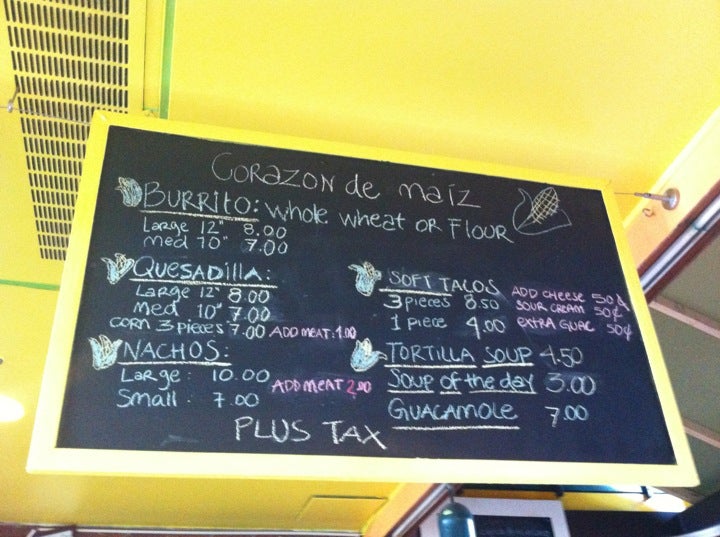 Corazon de maiz
Burrito: whole wheat or Flour
Large 12" 8.00
med 10" 7.00
Quesadilla:
Large 12" 8.00
med 10" 7.00
corn 3 pieces 7.00 ADD MEAT: 1.00
NACHOS:
Large: 10.00
Small: 7.00
ADD MEAT 2.00
SOFT TACOS
3 pieces 8.50
1 piece 4.00
ADD CHEESE 50¢
SOUR CREAM 50¢
EXTRA GUAC 50¢
TORTILLA SOUP 4.50
Soup of the day 3.00
Guacamole 7.00
PLUS TAX